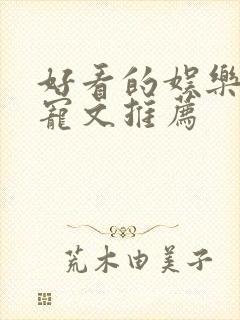 好看的娱樂
寵文推薦
荒木由美子